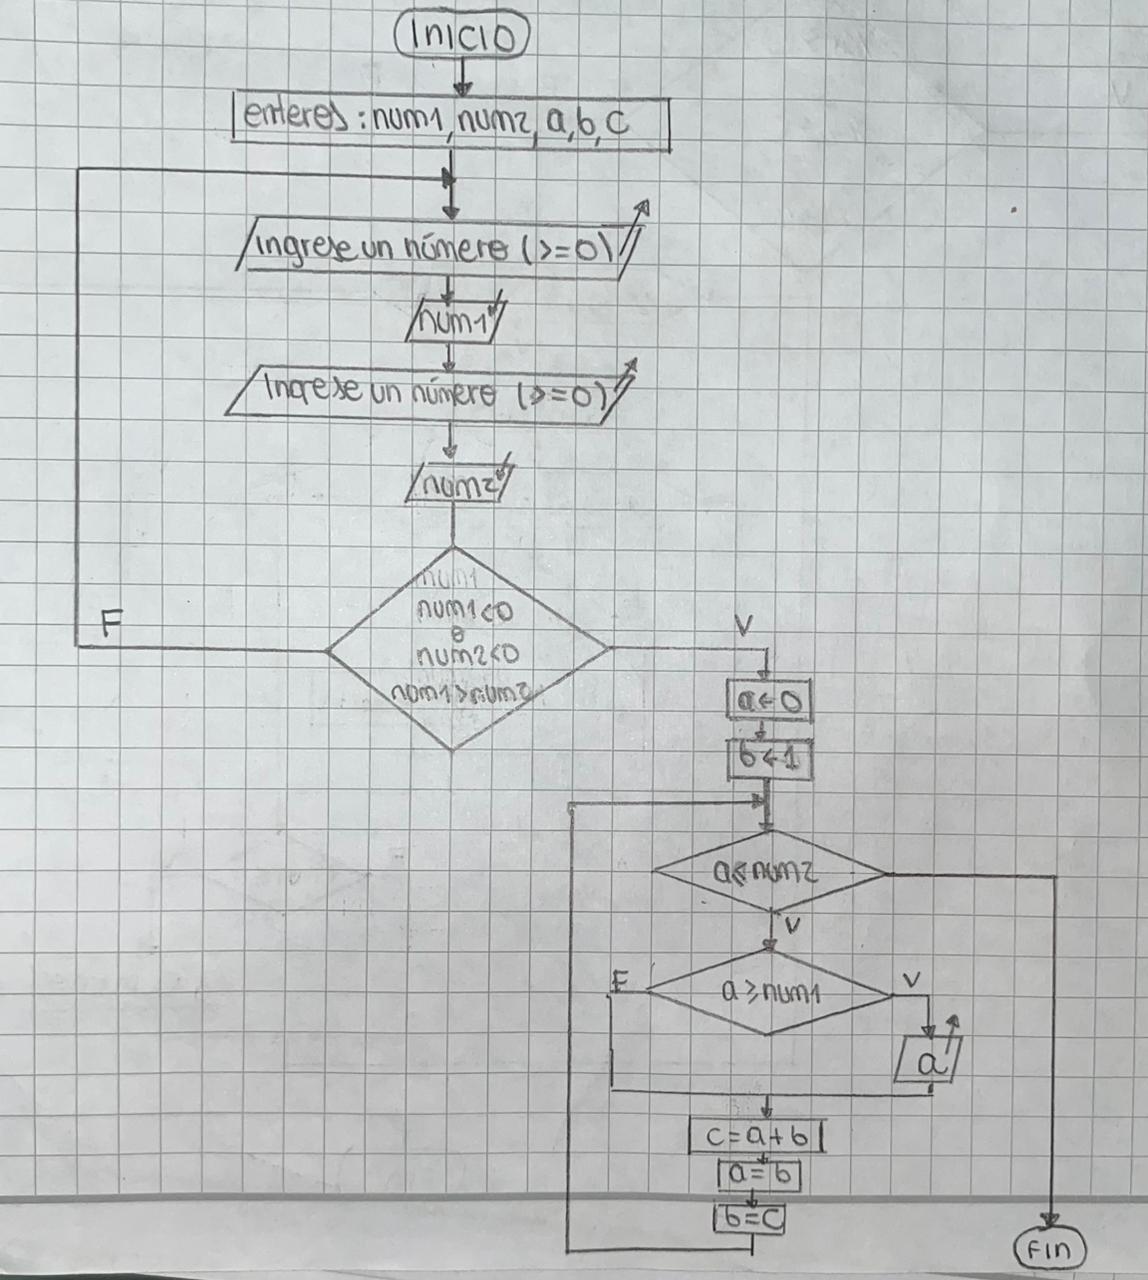 Inicio
enteros: num1, num2, a, b, c
Ingrese un número (>=0)
num1
Ingrese un número (>=0)
num2
num1
F
num1<0
o
num2<0
num1>num2
V
a←0
b←1
a≤num2
V
F
a≥num1
V
a
c=a+b
a=b
b=c
Fin